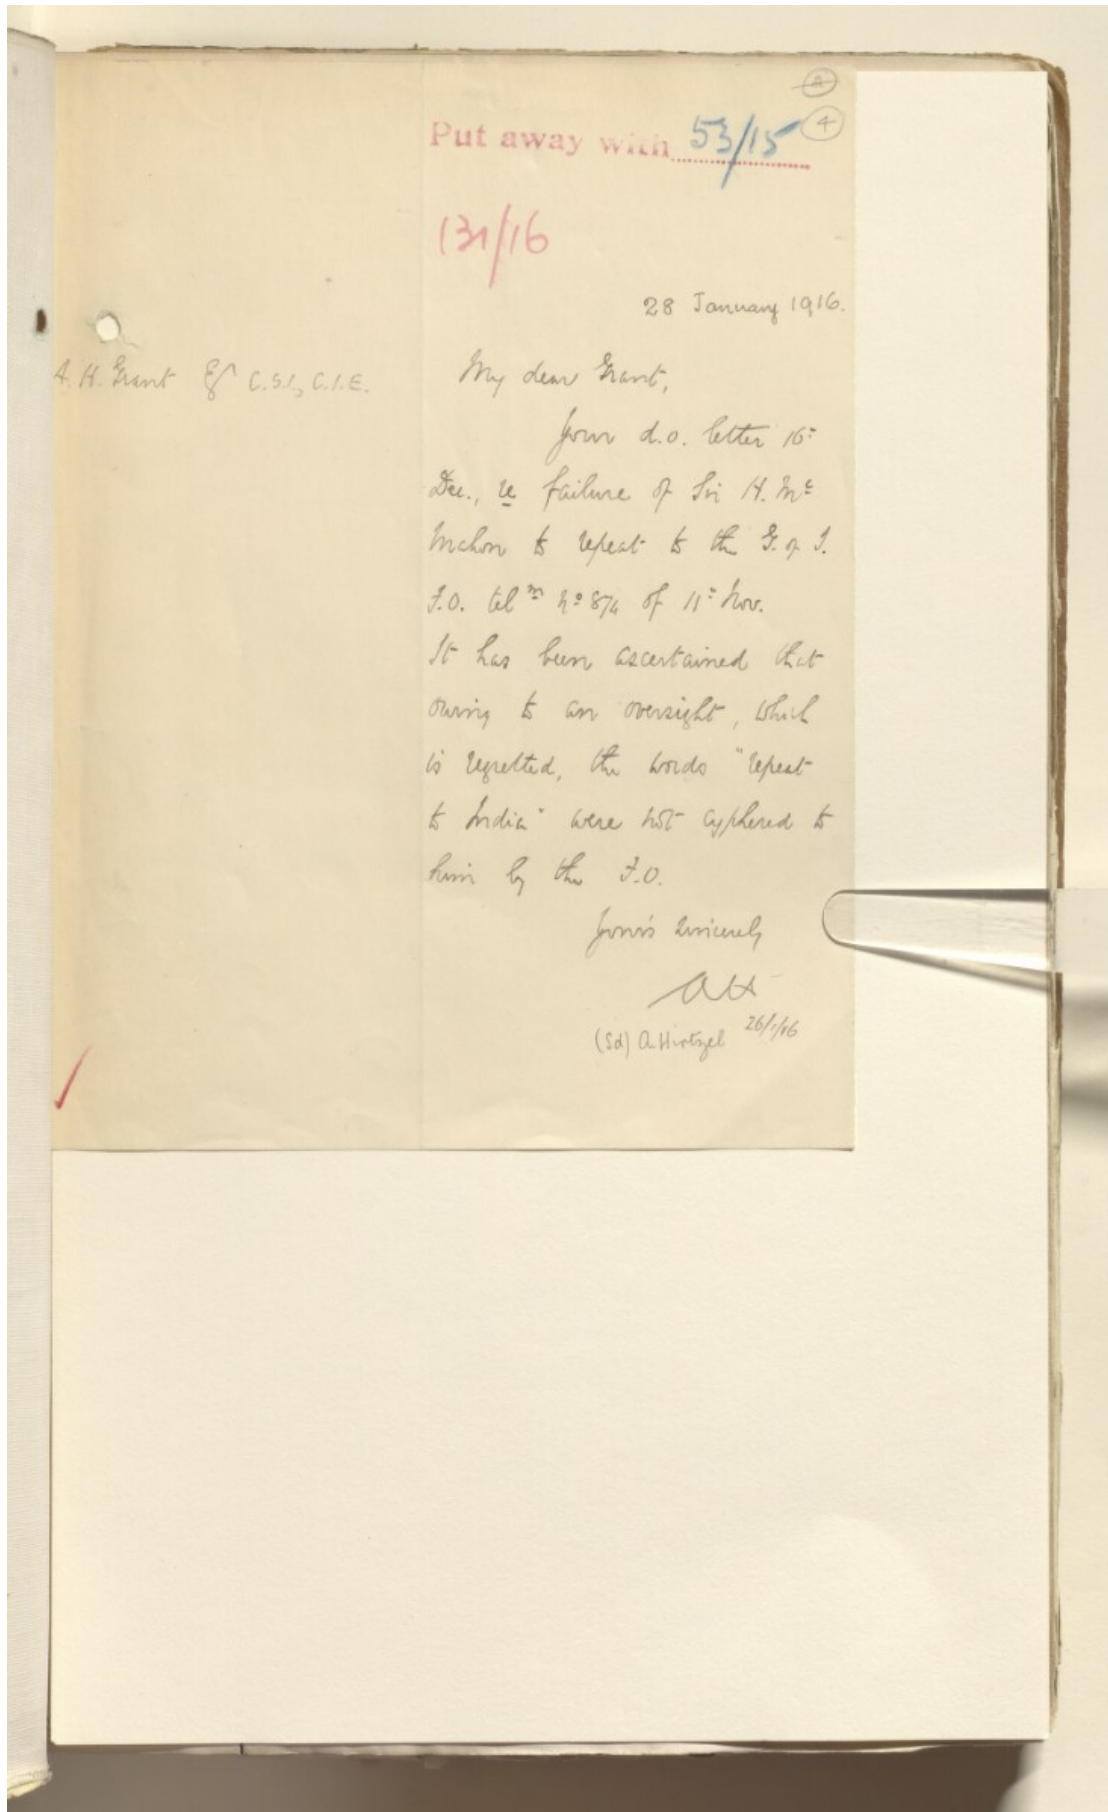 2
4
Put away with 53/15
131/16
28 January 1916.
A. H. Grant Esqr C.S.I., C.I.E.
My dear Grant,
Your d.o. letter 16th
Dec., re failure of Sir H. Mc
Mahon to repeat to the G. of I.
F.O. telm No 874 of 11th Nov.
It has been ascertained that
owing to an oversight, which
is regretted, the words "repeat
to India" were not cyphered to
him by the F.O.
Yours sincerely
AH
26/1/16
(Sd) A. Hirtzel